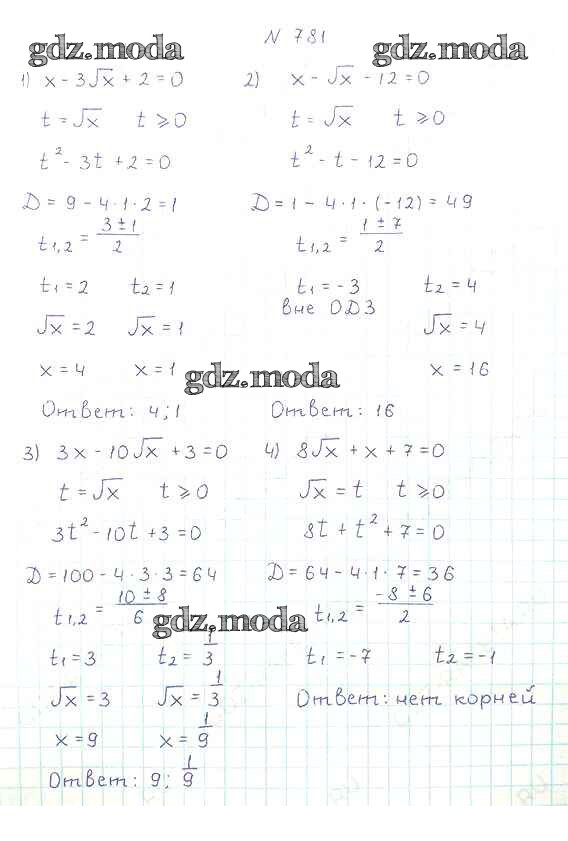 gdz.moda N 781 gdz.moda
1) x - 3√x + 2 = 0
t = √x t ⩾ 0
t² - 3t + 2 = 0
D = 9 - 4·1·2 = 1
t₁,₂ = (3 ± 1)/2
t₁ = 2 t₂ = 1
√x = 2 √x = 1
x = 4 x = 1
Ответ: 4; 1
2) x - √x - 12 = 0
t = √x t ⩾ 0
t² - t - 12 = 0
D = 1 - 4·1·(-12) = 49
t₁,₂ = (1 ± 7)/2
t₁ = -3 t₂ = 4
вне ОДЗ
√x = 4
x = 16
gdz.moda
Ответ: 16
3) 3x - 10√x + 3 = 0
t = √x t ⩾ 0
3t² - 10t + 3 = 0
D = 100 - 4·3·3 = 64
t₁,₂ = (10 ± 8)/6
gdz.moda
t₁ = 3 t₂ = 1/3
√x = 3 √x = 1/3
x = 9 x = 1/9
Ответ: 9; 1/9
4) 8√x + x + 7 = 0
√x = t t ⩾ 0
8t + t² + 7 = 0
D = 64 - 4·1·7 = 36
t₁,₂ = (-8 ± 6)/2
t₁ = -7 t₂ = -1
Ответ: нет корней